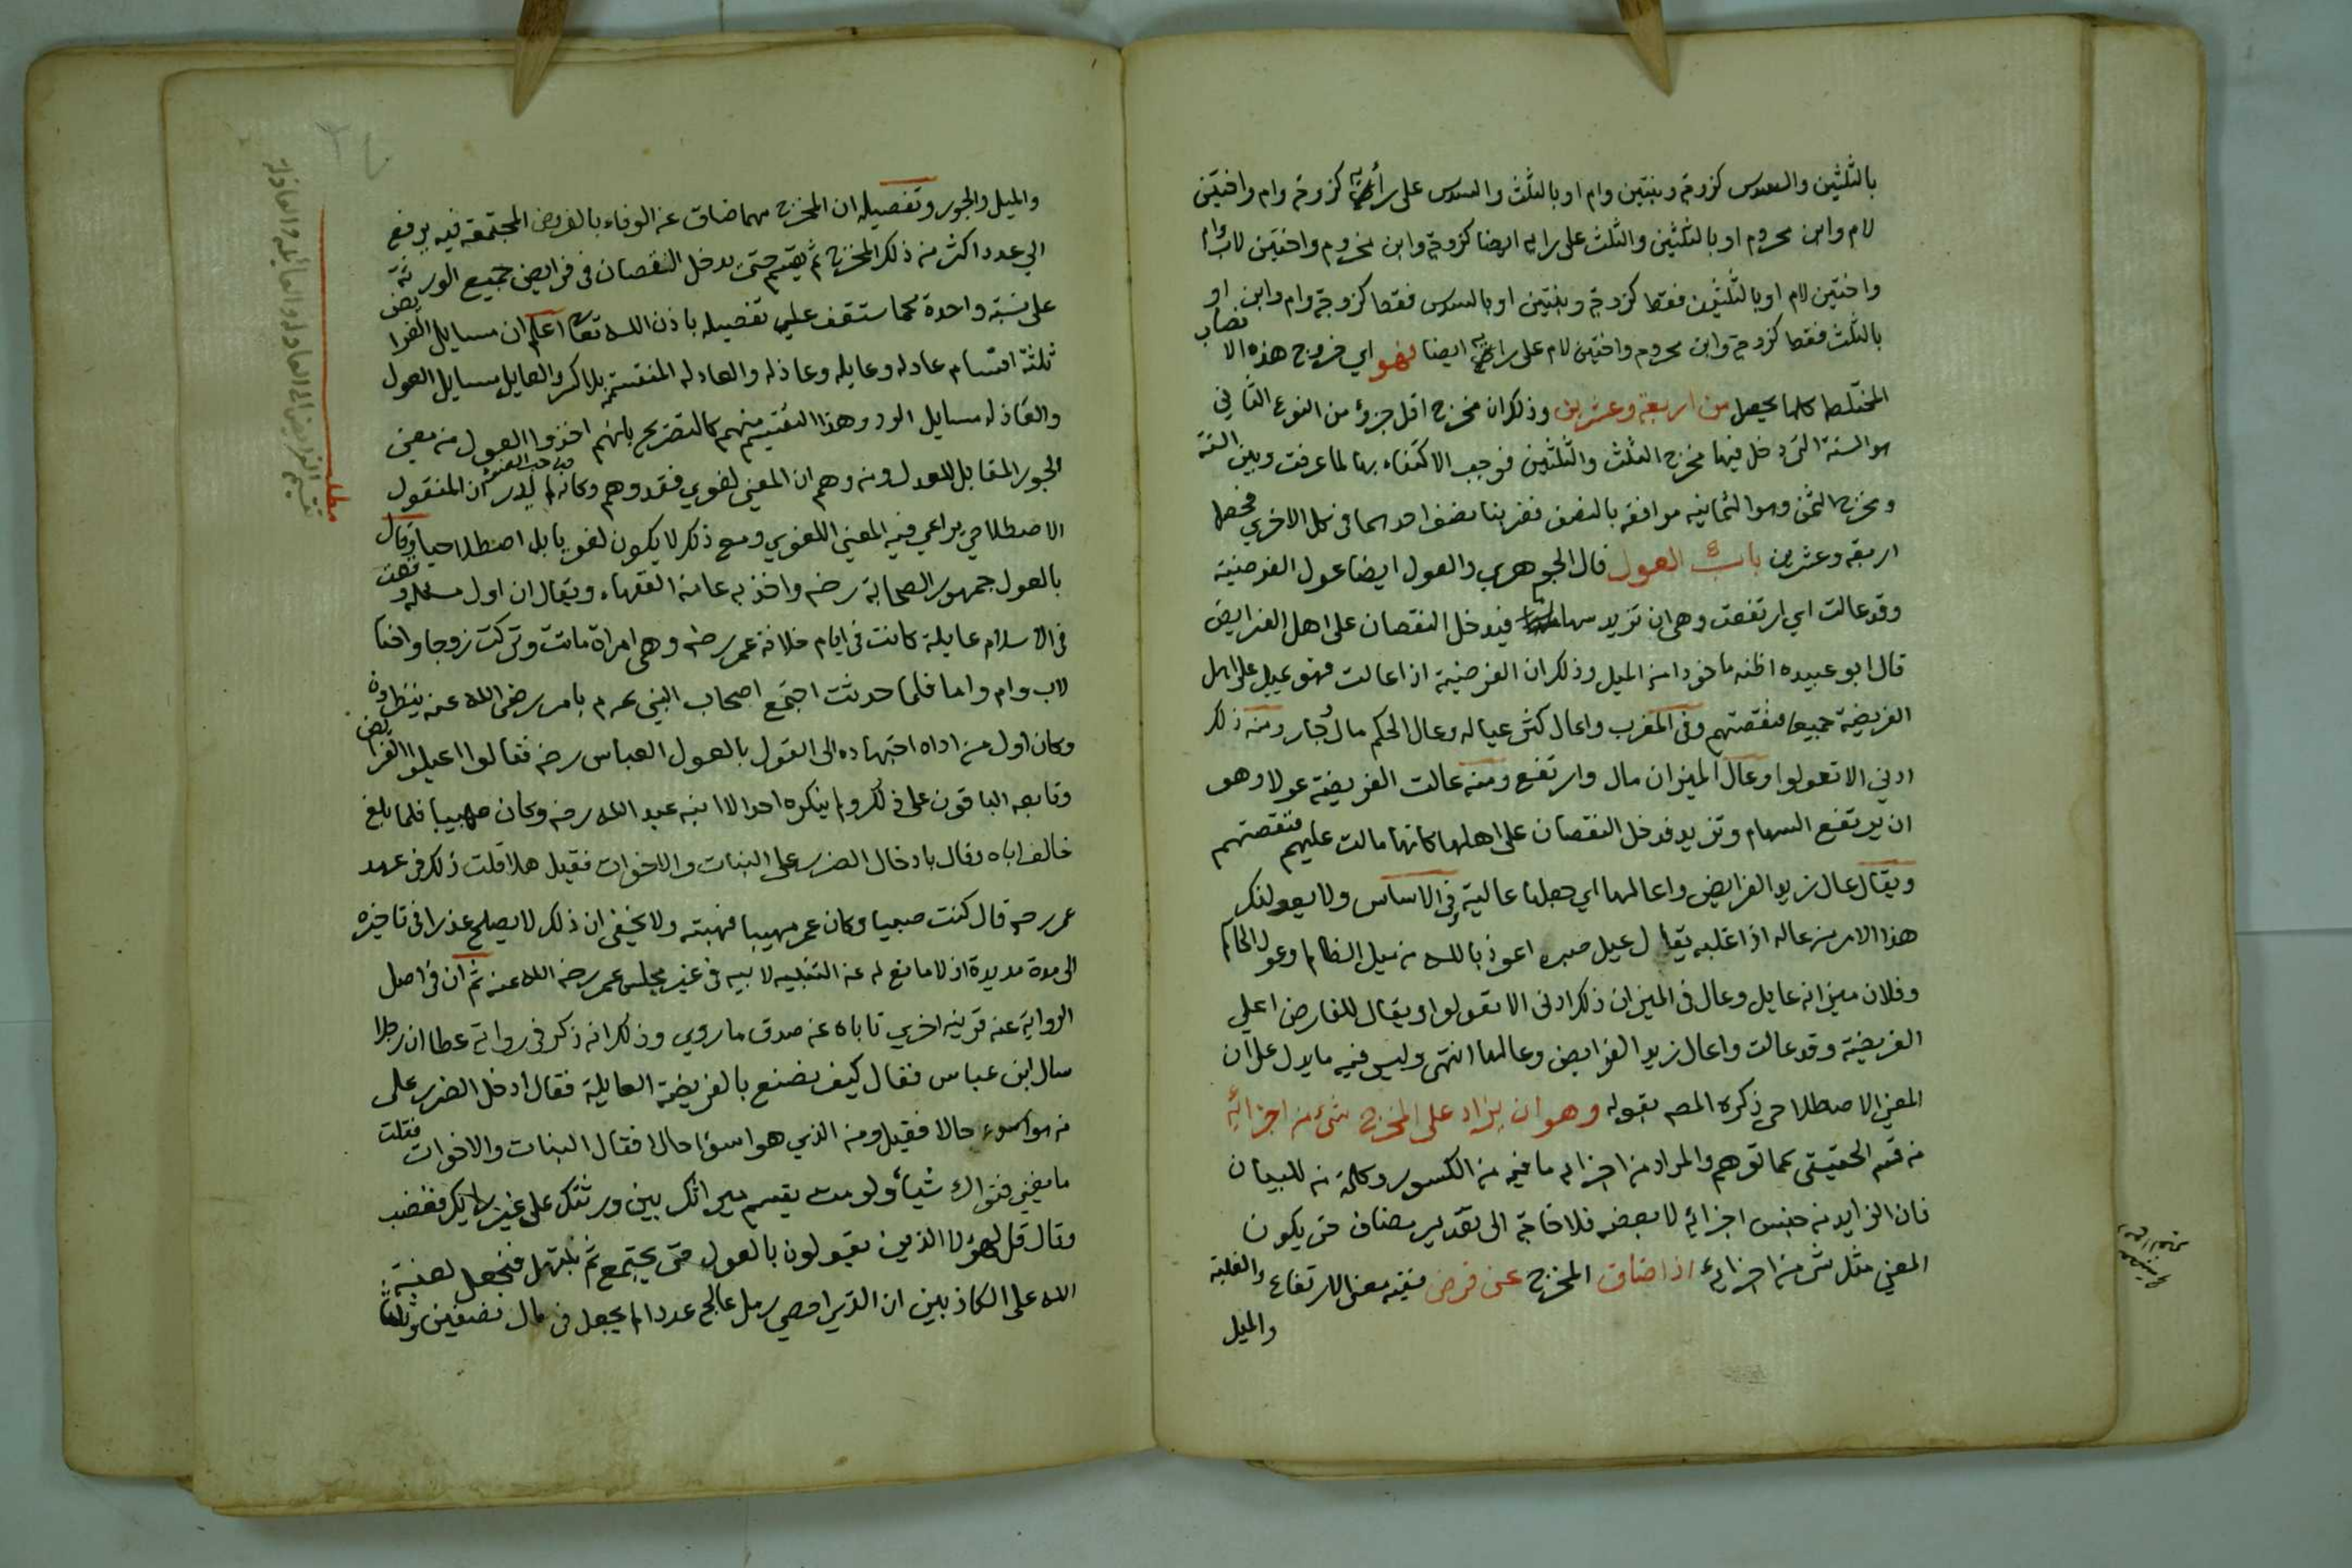 بالثلثين والسدس كزوجة وبنتين وام او بالثلث والسدس على رأيه كزوجة وام واختين
لام وابن محروم او بالثلثين والثلث على رايه ايضا كزوجة وابن محروم واختين لاب وام
واختين لام او بالثلثين فقط كزوجة وبنتين او بالسدس فقط كزوجة وام وابن او
بالثلث فقط كزوجة وابن محروم واختين لام على رايه ايضا فهو اي خروج هذه الانصاب
المختلط كلها يحصل من اربعة وعشرين وذلك ان مخرج اقل جزؤ من النوع الثاني
هو الستة التي دخل فيها مخرج الثلث والثلثين فوجب الاكتفاء بها لما عرفت وبين الستة
ومخرج الثمن وهو الثمانيه موافقه بالنصف فضربنا نصف احدهما في كل الاخرى فحصل
اربعة وعشرين باب العول قال الجوهري والعول ايضا عول الفريضة
وقد عالت اي ارتفعت وهي ان تزيد سهامها فيدخل النقصان على اهل الفرايض
قال ابو عبيده اظنه ماخوذا من الميل وذلك ان الفريضة اذا عالت فهو يميل على اهل
الفريضة جميعا فتنقصهم وفي المغرب واعال كثر عياله وعال الحكم مال وجار ومنه ذلك
ادني الا تعولوا وعال الميزان مال وارتفع ومنه عالت الفريضة عولا وهو
ان يرتفع السهام وتزيد فدخل النقصان على اهلها كانها مالت عليهم فتنقصهم
ويقال عال زيد الفرايض واعالها اي جعلها عالية وفي الاساس
هذا الامر من عاله اذا غلبه يقال عيل صبره اعوذ بالله من ميل الظالم وعول الحاكم
وفلان ميزانه عايل وعال في الميزان ذلك ادنى الا تعولوا ويقال للفارض اعلي
الفريضة وقد عالت واعال زيد الفرايض وعالها انتهى وليس فيه ما يدل على ان
المعني الاصطلاحي ذكره المص بقوله وهو ان يزاد على المخرج شئ من اجزائه
من قسم الحقيقي كما توهم والمراد من اجزائه ما فيه من الكسور وكلمة من للبيان
فان الزايد من جنس اجزائه لا بعضه فلا حاجة الى تقدير مضاف حتى يكون
المعني مثل شئ من اجزائه اذا ضاق المخرج عن فرض ففيه معنى الارتفاع والغلبة
والميل
والميل والجور وتفصيله ان المخرج مهما ضاق عن الوفاء بالفروض المجتمعة فيه يرفع
الي عدد اكثر من ذلك المخرج ثم يقسم حتى يدخل النقصان في فرايض جميع الورثة
على نسبة واحدة كما ستقف علي تفصيله باذن الله تعا اعلم ان مسايل الفرايض
ثلثة اقسام عادله وعايله وعاذله والعادله المنقسمة بلا كسر والعايل مسايل العول
والعاذله مسايل الرد وهذا التقسيم منهم كالتصريح بانهم اخذوا العول من معني
الجور المقابل للعدل ومن وهم ان المعني لغوي فقد وهم وكانه لم يدر ان المنقول
الاصطلاحي يراعي فيه المعني اللغوي ومع ذلك لا يكون لغويا بل اصطلاحيا وقال
بالعول جمهور الصحابة رضه واخذ به عامة الفقهاء ويقال ان اول مسئلة وقعت
في الاسلام عايلة كانت في ايام خلافة عمر رضه وهي امراة ماتت وتركت زوجا واختا
لاب وام واما فلما حدثت اجتمع اصحاب النبي عم بامر رضى الله عنه ينظرون
وكان اول من اداه اجتهاده الى القول بالعول العباس رضه فقالوا اعيلوا الفرايض
وتابعه الباقون على ذلك ولم ينكره احد الا ابنه عبد الله رضه وكان صبيا فلما بلغ
خالف اباه وقال بادخال الضرر على البنات والاخوات فقيل هلا قلت ذلك في عهد
عمر رضه قال كنت صبيا وكان عمر مهيبا فهبته ولا يخفى ان ذلك لا يصلح عذرا في تاخيره
الى مدة مديدة اذ لا مانع له عن التنبيه لابيه في غير مجلس عمر رضى الله عنه ثم ان في اصل
الرواية عنه قرينه اخري تاباه عن صدق ما روي وذلك انه ذكر في رواية عطا ان رجلا
سال ابن عباس فقال كيف يصنع بالفريضة العايلة فقال ادخل الضرر على
من هو اسوء حالا فقيل ومن الذي هو اسؤا حالا فقال البنات والاخوات فقلت
ما يغني فتواك شيأ ولو مت يقسم ميراثك بين ورثتك على غير رايك فغضب
وقال قل لهؤلا الذين يقولون بالعول حتى يجتمع ثم نبتهل فنجعل لعنة
الله على الكاذبين ان الذي احصي رمل عالج عددا لم يجعل في مال نصفين وثلثا
مطلب
تقسيم الفرايض الى العادلة والعايلة والعاذلة